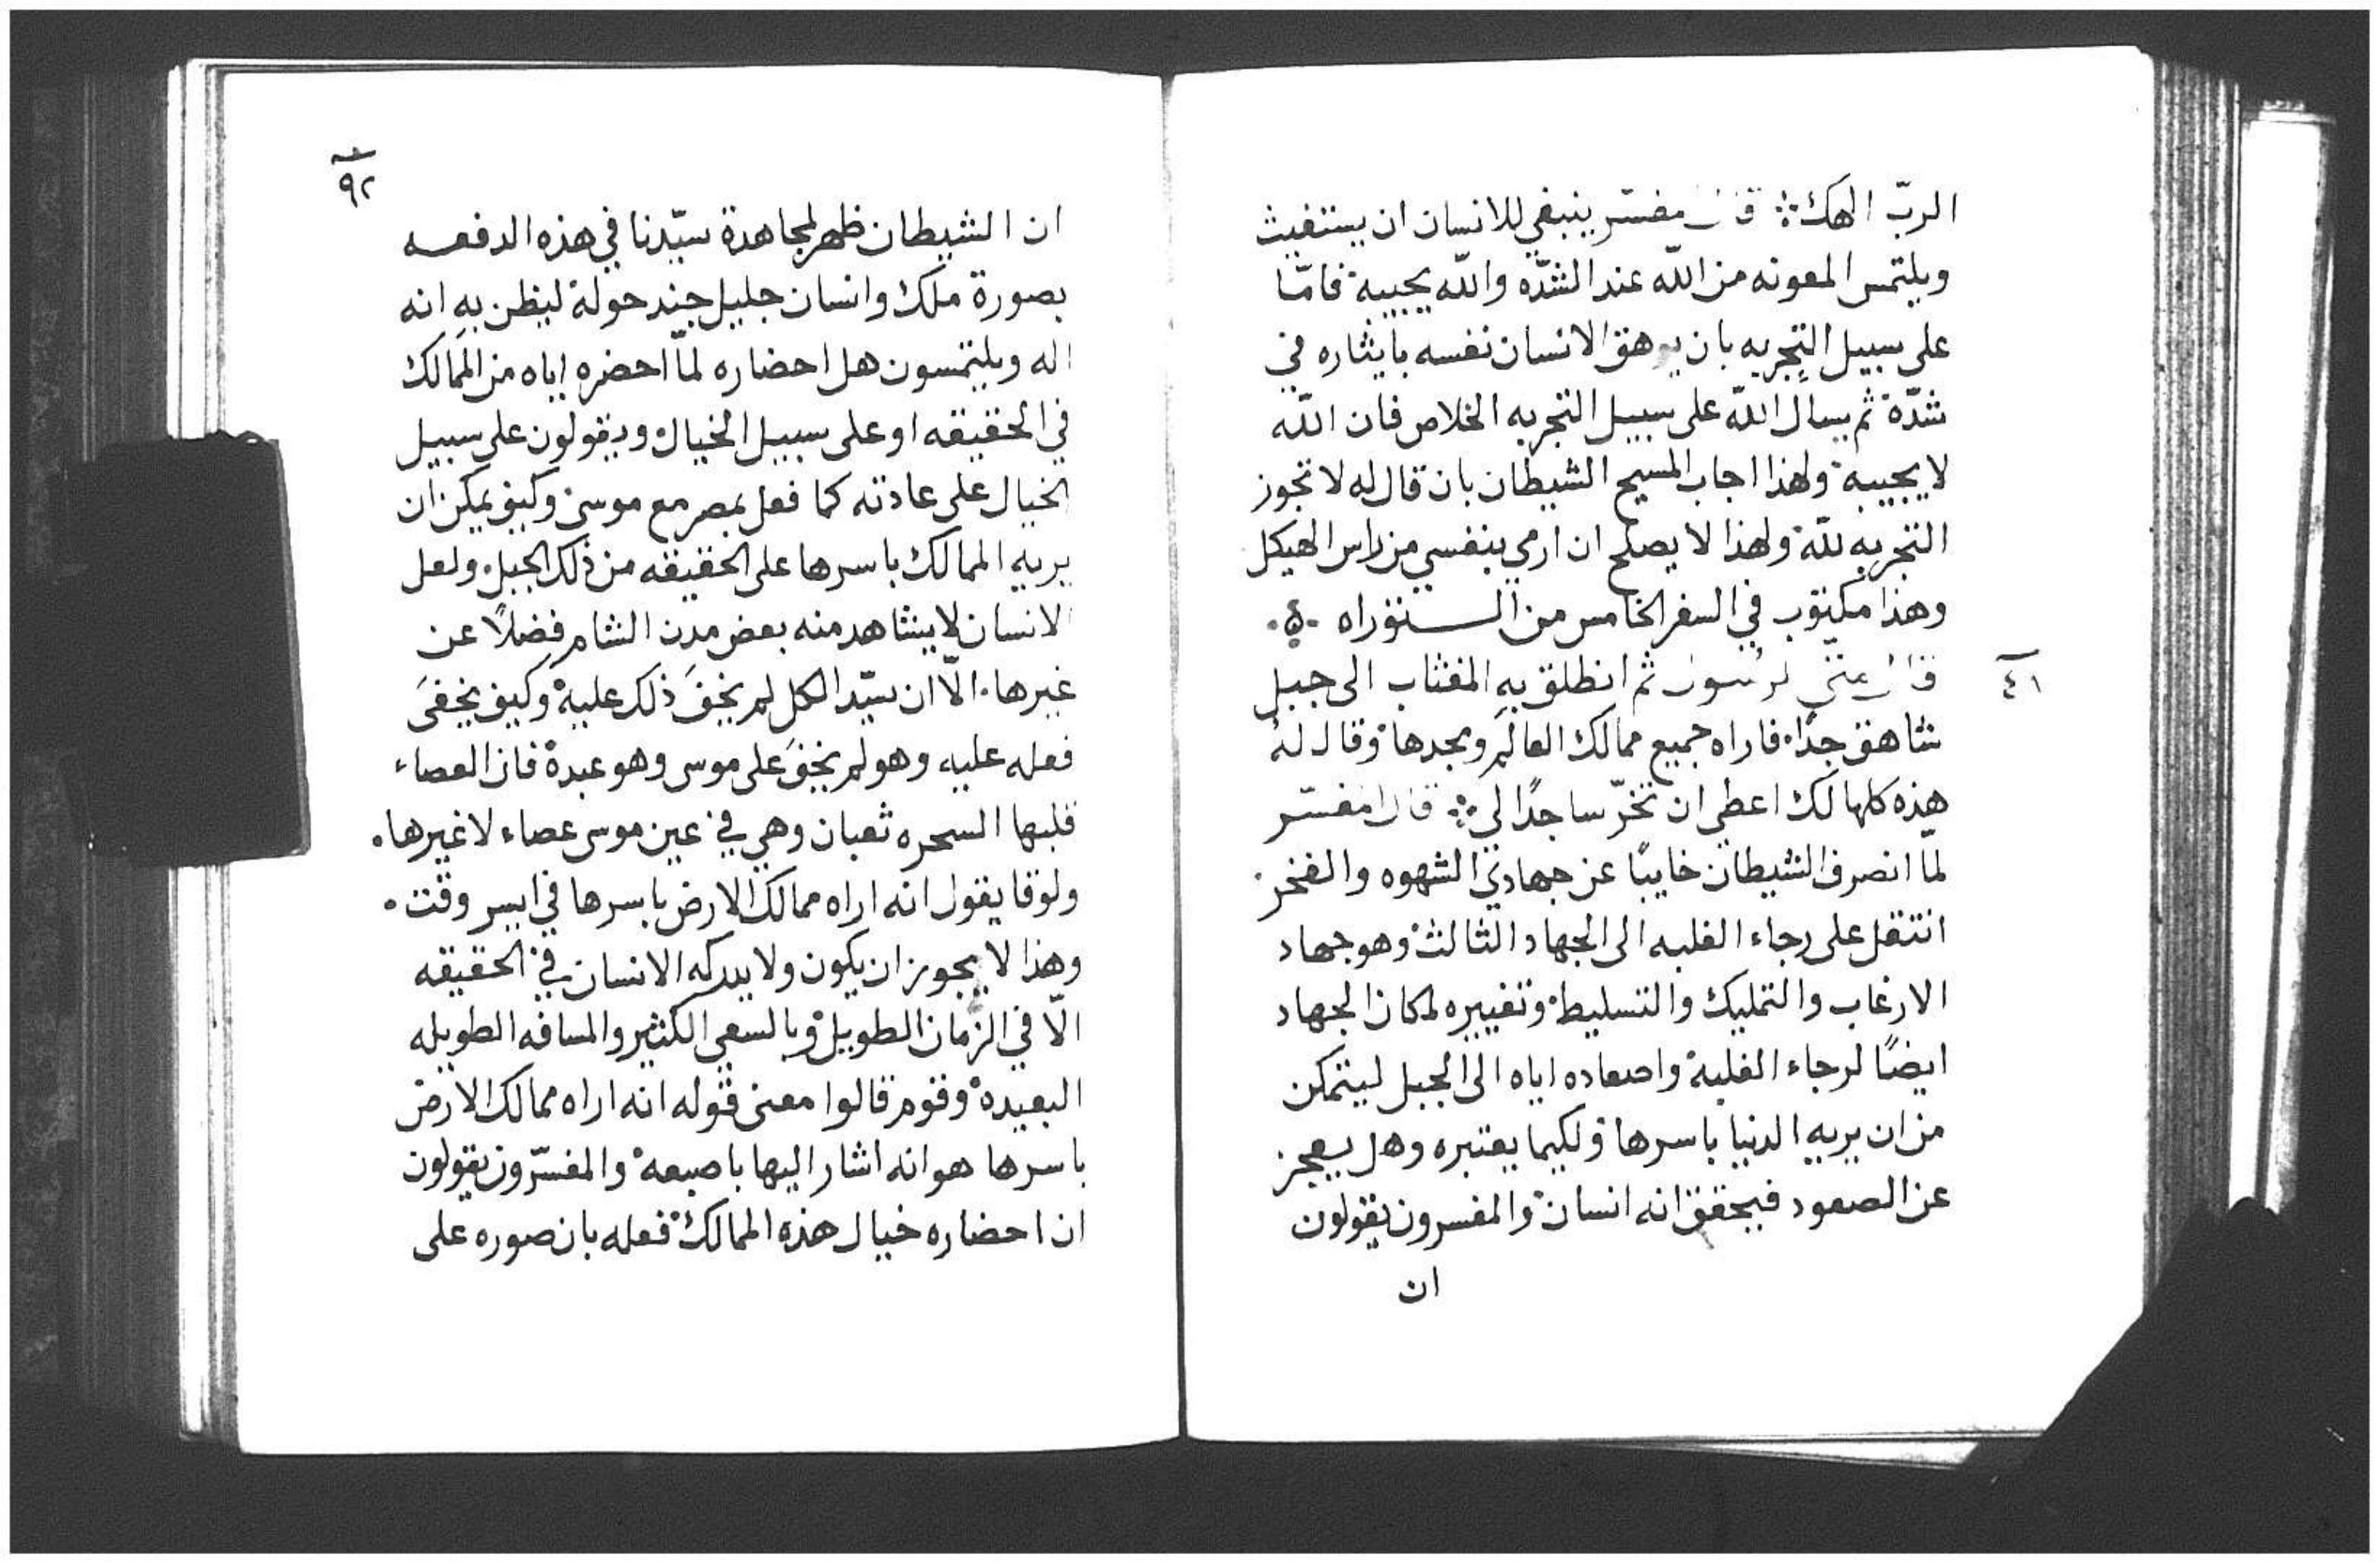 الربّ الهك ܀ قال مفسّر ينبغي للانسان ان يستغيث
ويلتمس المعونه من الله عند الشدّه والله يجيبه فامّا
على سبيل التجربه بان يوهق الانسان نفسه بايثاره في
شدّة ثم يسال الله على سبيل التجربه الخلاص فان الله
لا يجيبه ولهذا اجاب المسيح الشيطان بان قال له لا تجوز
التجربه لله ولهذا لا يصلح ان ارمي بنفسي من راس الهيكل
وهذا مكتوب في السفر الخامس من التوراه
٤١
قال متي الرسول ثم انطلق به المغتاب الى جبل
شاهق جدًا. فاراه جميع ممالك العالم ومجدها وقال له
هذه كلها لك اعطي ان تخرّ ساجدًا لي ܀ قال المفسّر
لمّا انصرف الشيطان خايبًا عن جهادي الشهوه والفخر.
انتقل على رجاء الغلبه الى الجهاد الثالث وهو جهاد
الارغاب والتمليك والتسليط وتغييره لمكان الجهاد
ايضًا لرجاء الغلبه واصعاده اياه الى الجبل ليتمكن
من ان يريه الدنيا باسرها ولكيما يعتبره وهل يعجز
عن الصعود فيحقق انه انسان والمفسرون يقولون
ان
٩٢
ان الشيطان ظهر لمجاهدة سيّدنا في هذه الدفعه
بصورة ملك وانسان جليل جند حوله ليظن به انه
اله ويلتمسون هل احضاره لمّا احضره اياه من الممالك
في الحقيقه او على سبيل الخيال ويقولون على سبيل
الخيال على عادته كما فعل بمصر مع موسى وكيف يمكن ان
يريه الممالك باسرها على الحقيقه من ذلك الجبل ولعل
الانسان لا يشاهد منه بعض مدن الشام فضلاً عن
غيرها. الّا ان سيّد الكل لم يخفَ ذلك عليه وكيف يخفى
فعله عليه وهو لم يخفَ على موسى وهو عبده فان العصاء
قلبها السحره ثعبان وهي في عين موسى عصاء لا غيرها.
ولوقا يقول انه اراه ممالك الارض باسرها في ايسر وقت.
وهذا لا يجوز ان يكون ولا يدركه الانسان في الحقيقه
الّا في الزمان الطويل وبالسعي الكثير والمسافه الطويله
البعيده وقوم قالوا معنى قوله انه اراه ممالك الارض
باسرها هو انه اشار اليها باصبعه والمفسّرون يقولون
ان احضاره خيال هذه الممالك فعله بان صوره على